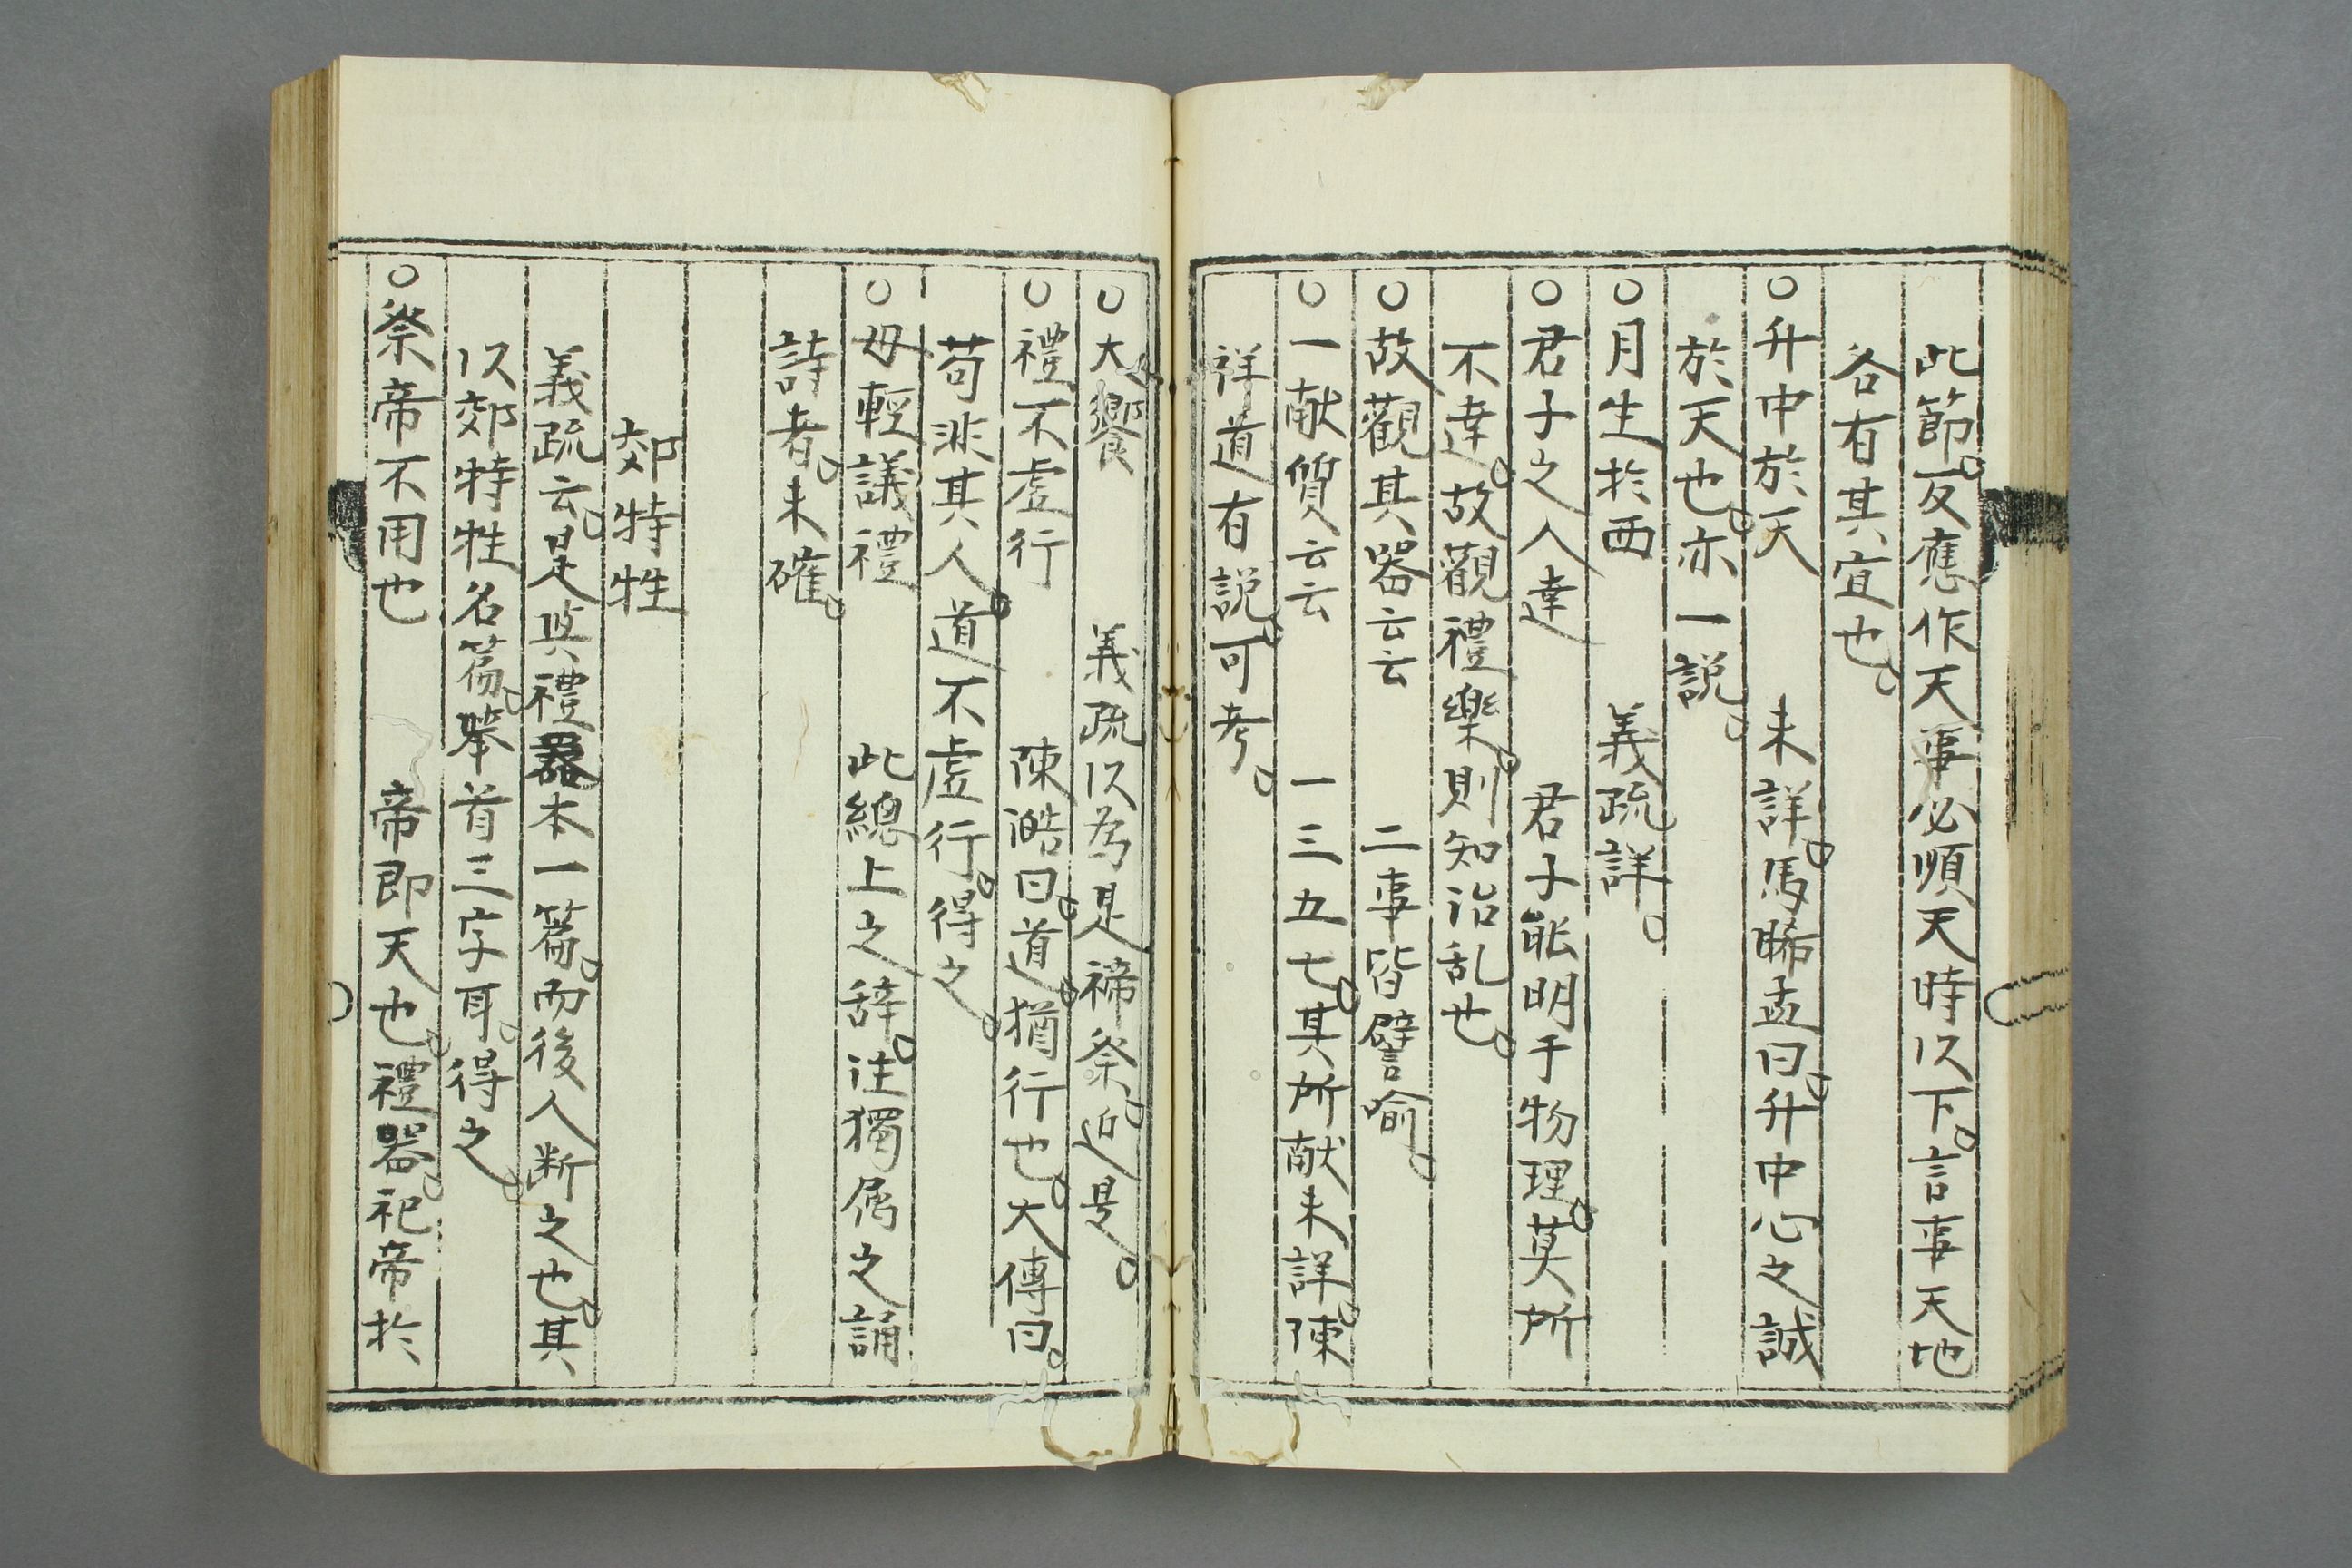 此節。反應作天事必順天時以下。言事天地
各有其宜也。
○升中於天　未詳。馬晞孟曰。升中心之誠
於天也。亦一説。
○月生於西　義疏詳。
○君子之人達　君子能明于物理。莫所
不達。故觀禮樂。則知治乱也。
○故觀其器云云　二事皆譬喻。
○一献質云云　一三五七。其所献未詳。陳
祥道有説。可考。
○大饗　義疏以為是禘祭。近是。
○禮不虛行　陳澔曰。道。猶行也。大傳曰。
苟非其人。道不虛行。得之。
○毋輕議禮　此總上之辞。注獨属之誦
詩者。未確。
郊特牲
義疏云。是與禮器本一篇。而後人断之也。其
以郊特牲名篇。擧首三字耳。得之。
○祭帝不用也　帝即天也。禮器。祀帝於